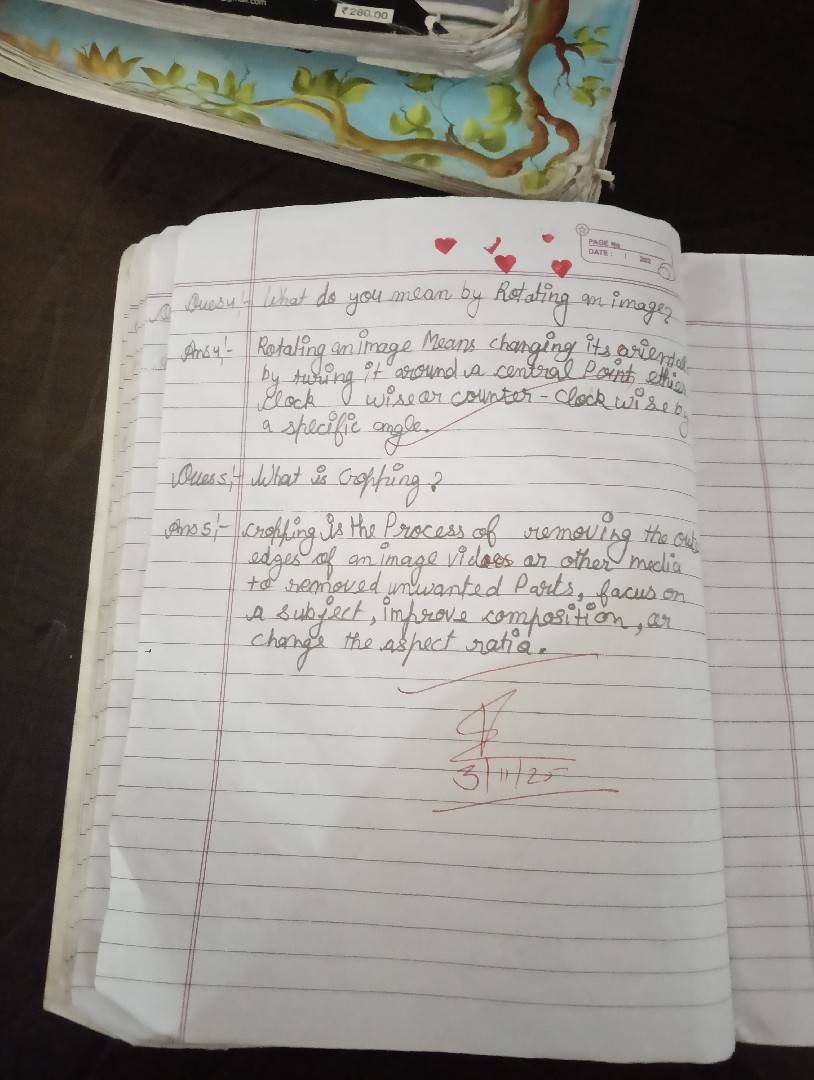 ₹280.00
PAGE No
DATE:
Ques4:- What do you mean by Rotating an image?
Ans4:- Rotating an image Means changing its
by turing it around a central Point,
Clock wise or counter-Clock wise by
a specific angle.
Ques5:- What is Cropping?
Ans5:- cropping is the Process of removing the
edges of an image videos or other media
to removed unwanted Parts, focus on
a subject, improve composition, or
change the aspect ratio.
3/11/25